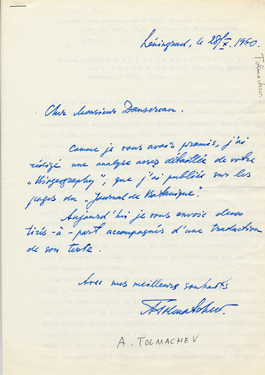 Léningrad, le 28/X. 1960
Tolmachev
Cher Monsieur Dansereau.
Comme je vous avais promis, j'ai
rédigé une analyse assez détaillée de votre
„Biogeography", que j'ai publiée sur les
pages du „Journal de Botanique".
Aujourd'hui je vous envoie deux
tirés-à-part accompagnés d'une traduction
de son texte.
Avec mes meilleurs souhaits
A. TOLMACHEV